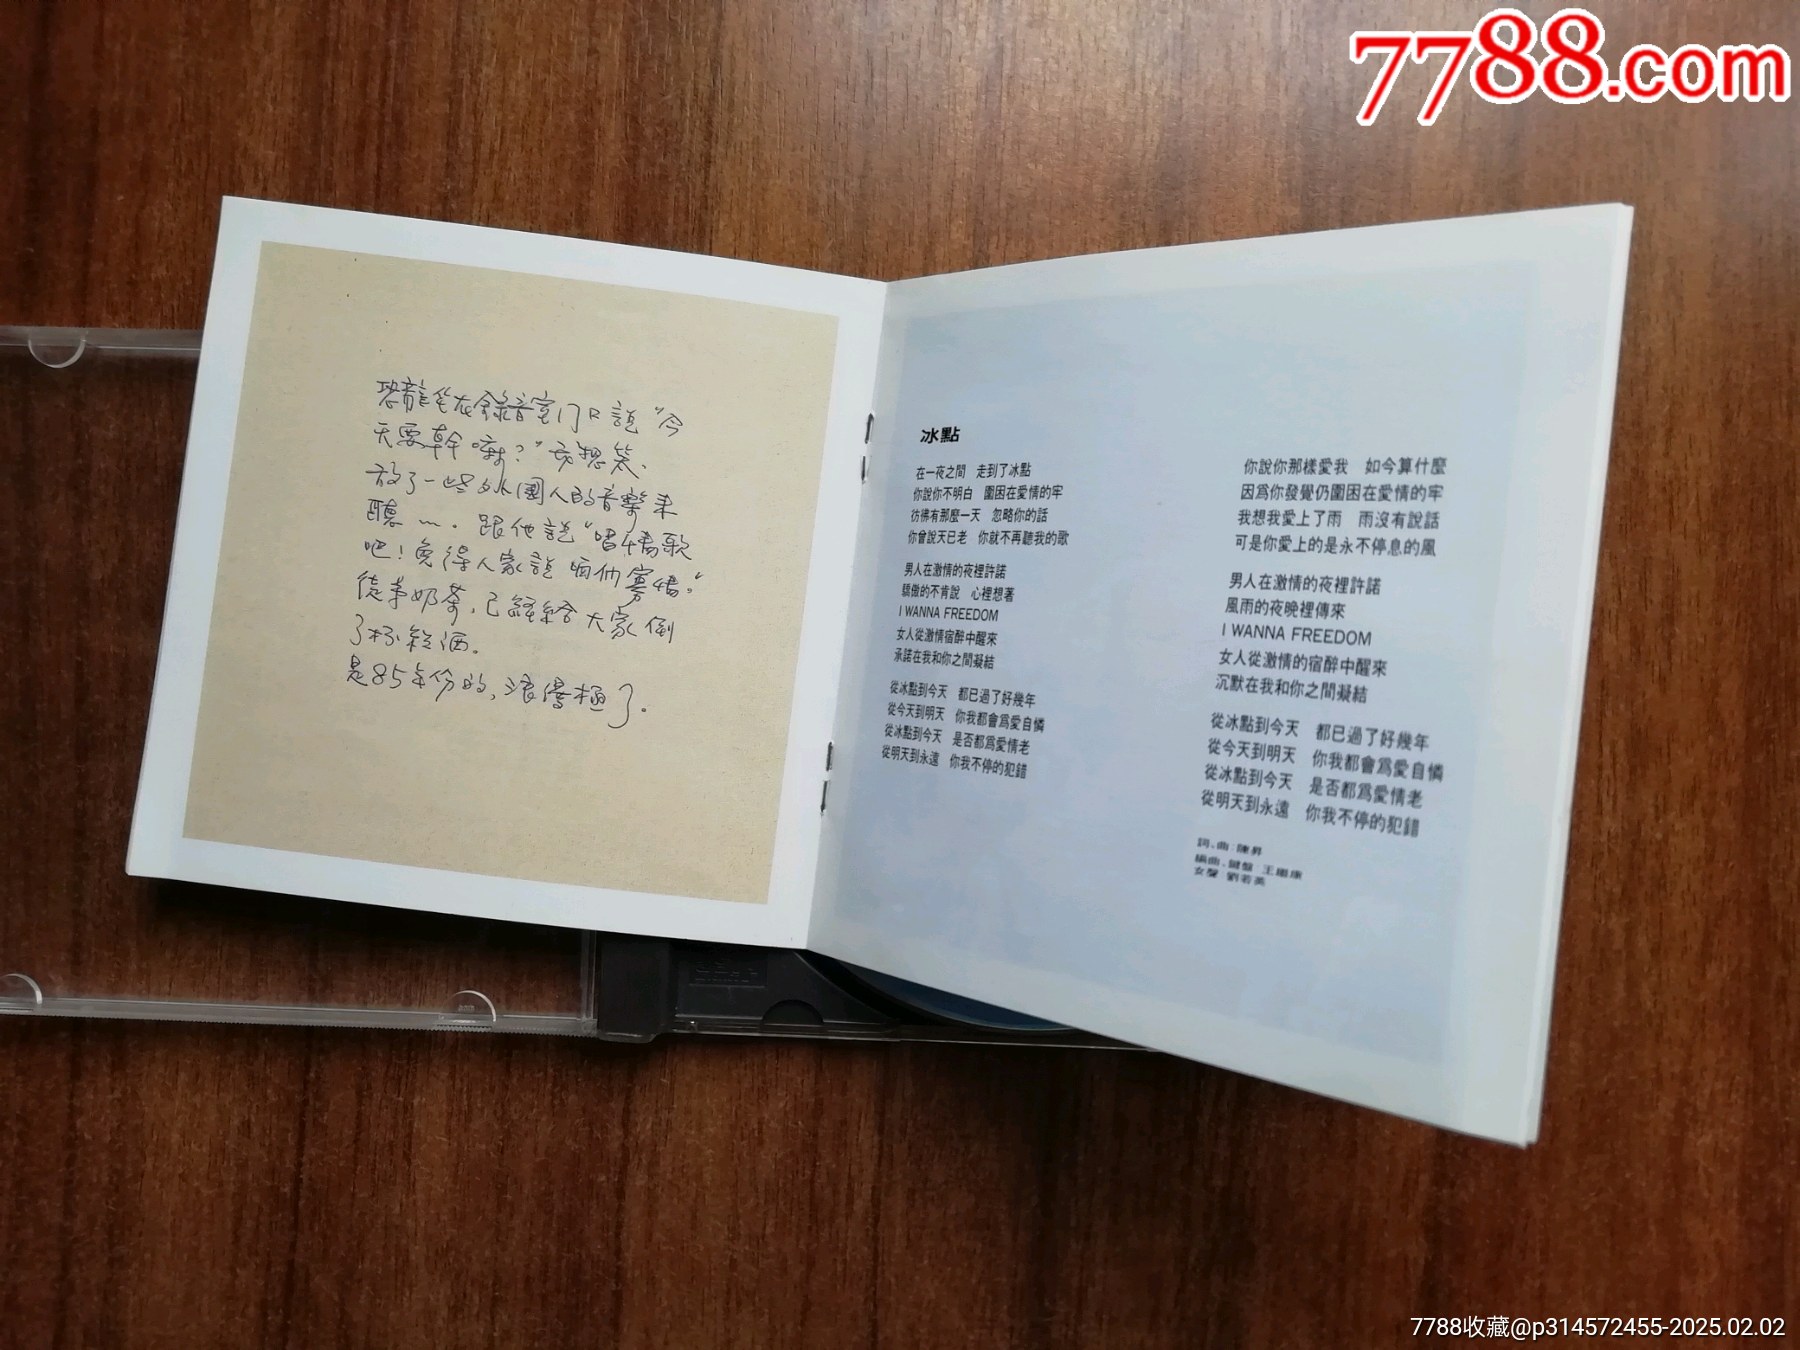 7788.com
恐龍笔在錄音室门口說“今
天要幹嘛？”
放了一些外國人的音樂来
聽～．跟他說“唱情歌
吧！免得人家說咱們寡情”
徒弟奶茶，已經給大家倒
了杯紅酒。
是85年份的，浪漫極了．
冰點
在一夜之間　走到了冰點
你說你不明白　圍困在愛情的牢
彷彿有那麼一天　忽略你的話
你曾說天已老　你就不再聽我的歌
男人在激情的夜裡許諾
驕傲的不肯說　心裡想著
I WANNA FREEDOM
女人從激情宿醉中醒來
承諾在我和你之間凝結
從冰點到今天　都已過了好幾年
從今天到明天　你我都會爲愛自憐
從冰點到今天　是否都爲愛情老
從明天到永遠　你我不停的犯錯
你說你那樣愛我　如今算什麼
因爲你發覺仍圍困在愛情的牢
我想我愛上了雨　雨沒有說話
可是你愛上的是永不停息的風
男人在激情的夜裡許諾
風雨的夜晚裡傳來
I WANNA FREEDOM
女人從激情的宿醉中醒來
沉默在我和你之間凝結
從冰點到今天　都已過了好幾年
從今天到明天　你我都會爲愛自憐
從冰點到今天　是否都爲愛情老
從明天到永遠　你我不停的犯錯
詞、曲 陳昇
編曲、鍵盤 王繼康
女聲 劉若英
7788收藏@p314572455-2025.02.02